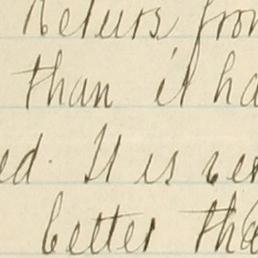 Returs from
than it ha
ed. It is ver
better tha